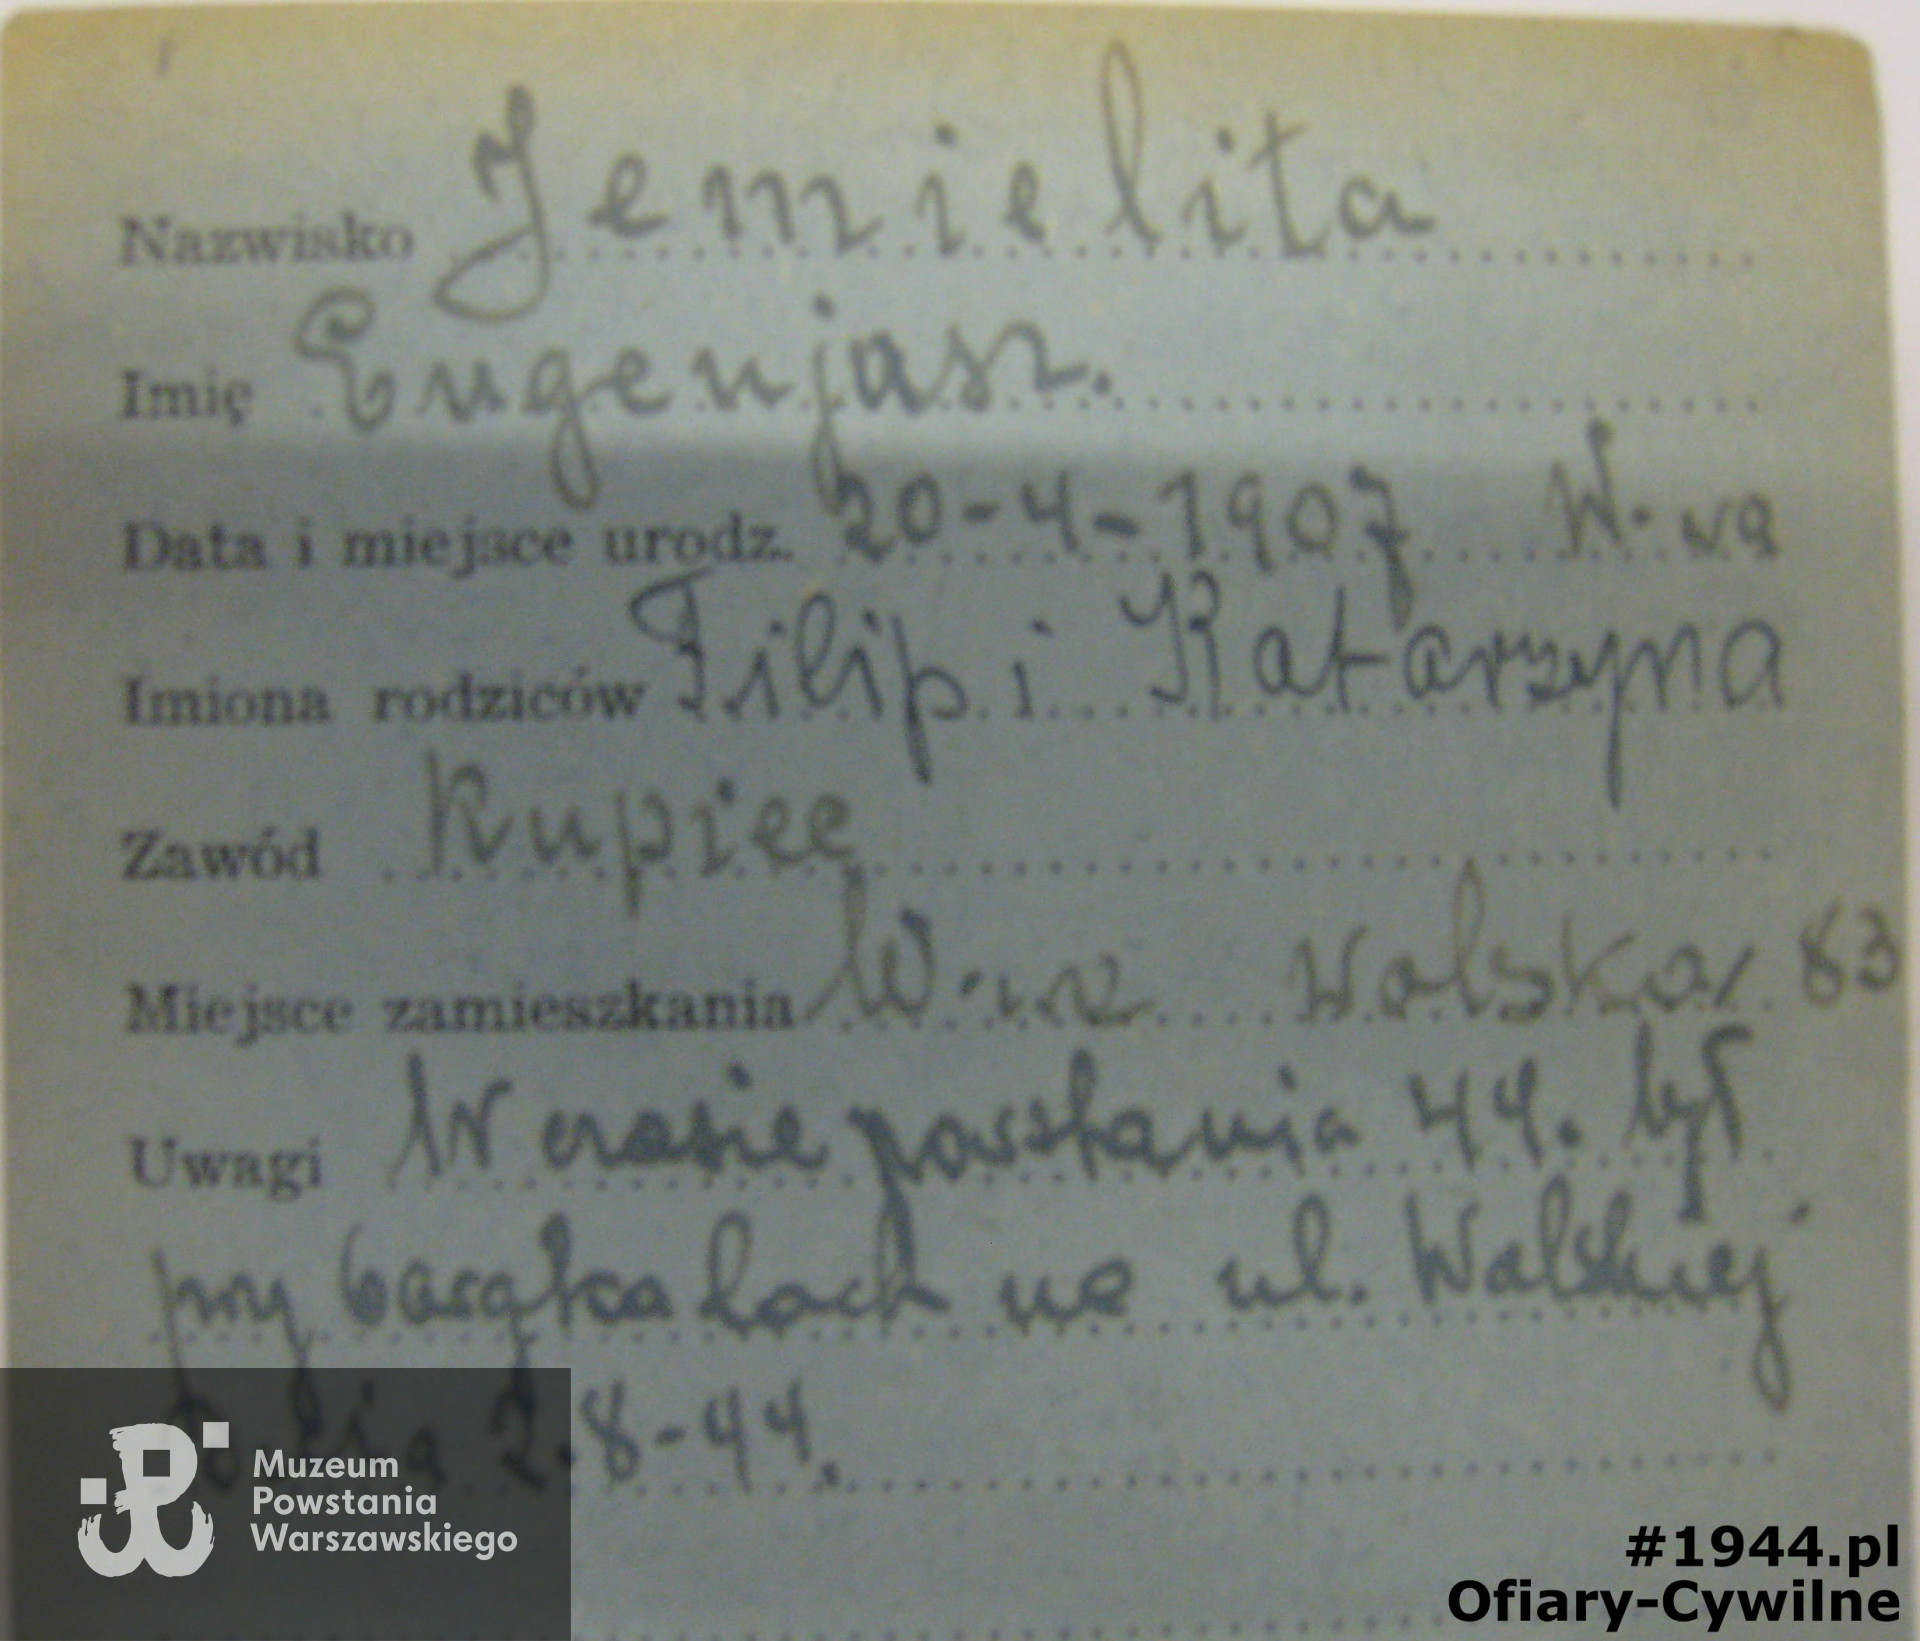 Nazwisko Jemielita
Imię Eugenjasz.
Data i miejsce urodz. 20-4-1907 W-wa
Imiona rodziców Filip i Katarzyna
Zawód Kupiec
Miejsce zamieszkania W-wa Wolska 83
Uwagi W czasie powstania 44. był
przy barykadach na ul. Wolskiej
dnia 2.8-44.
Muzeum
Powstania
Warszawskiego
#1944.pl
Ofiary-Cywilne